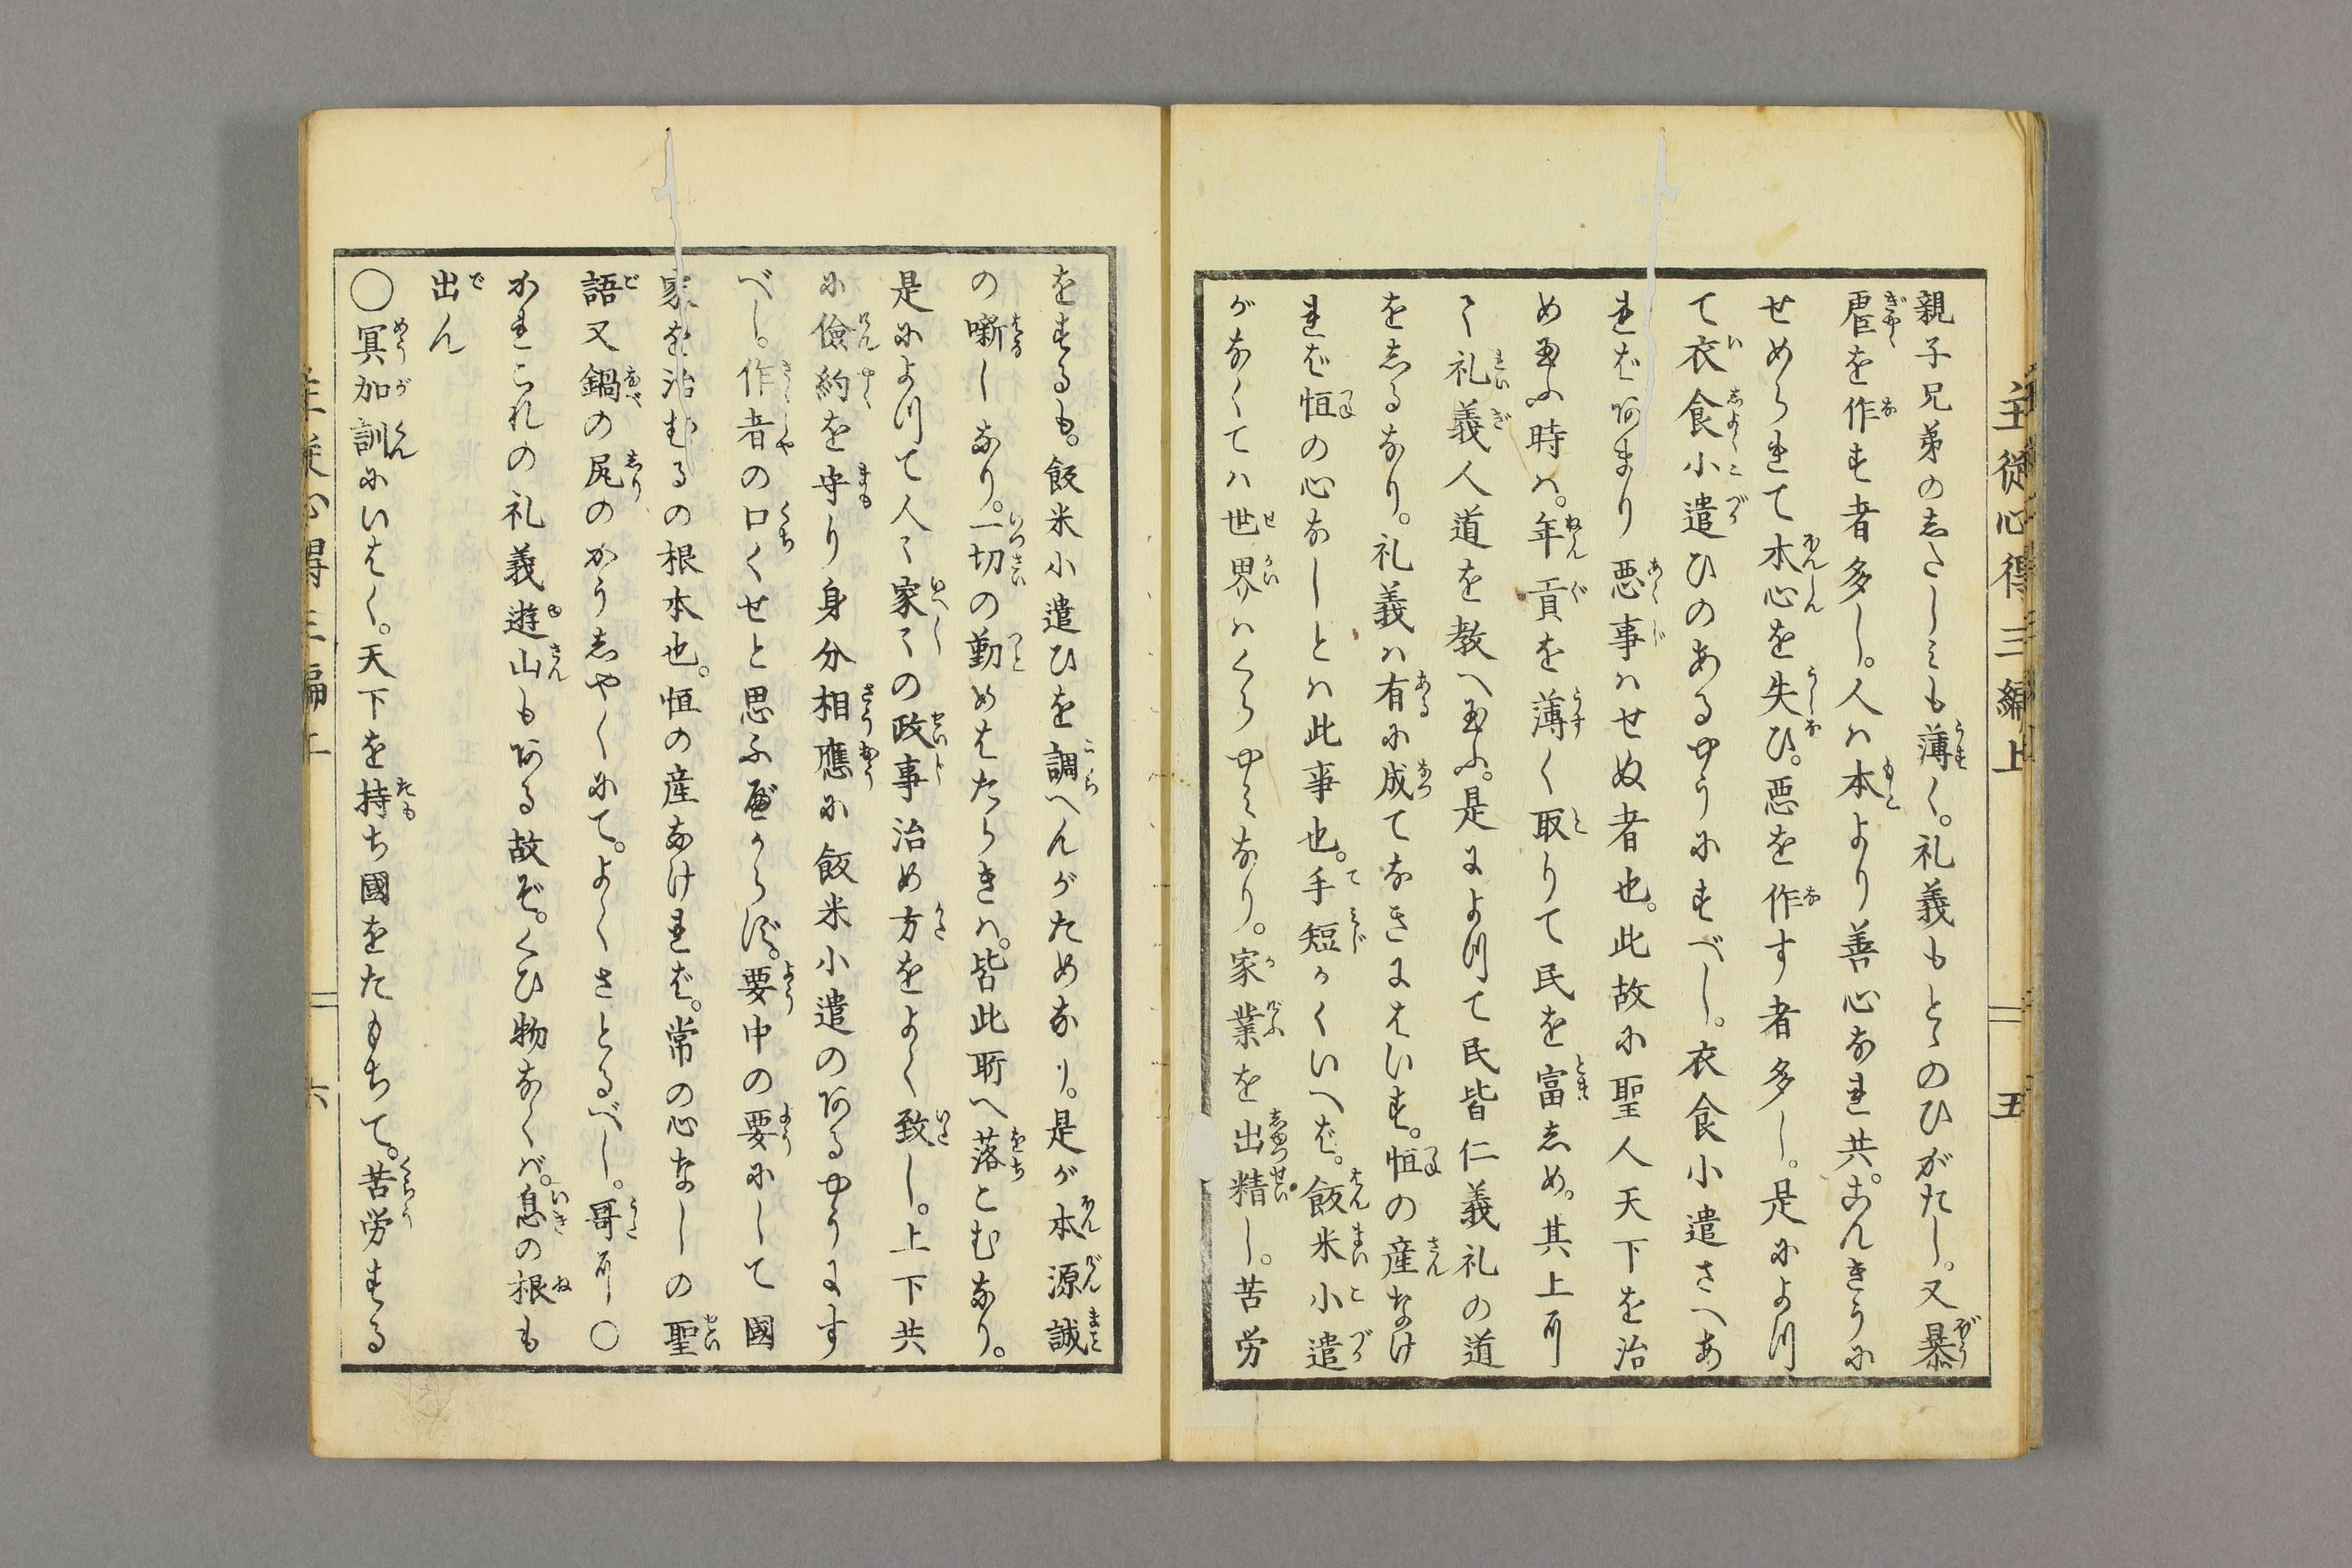 主從心得三編上　五
親子兄弟のしたしみも薄く。礼義もとゝのひがたし。又暴
虐を作す者多し。人ハ本より善心なれ共。こんきうに
せめられて本心を失ひ。悪を作す者多し。是によつ
て衣食小遣ひのあるやうにすべし。衣食小遣さへあ
ればあまり悪事ハせぬ者也。此故に聖人天下を治
め玉ふ時ハ。年貢を薄く取りて民を富しめ。其上ニ
て礼義人道を教へ玉ふ。是によつて民皆仁義礼の道
をしるなり。礼義ハ有に成てなきにはいす。恒の産なけ
れば恒の心なしとハ此事也。手短かくいへば。飯米小遣
がなくてハ世界ハくらやみなり。家業を出精し。苦労
をするも。飯米小遣ひを調へんがためなり。是が本源誠
の噺しなり。一切の勤めはたらきハ。皆此所へ落こむなり。
是によつて人〻家〻の政事治め方をよく致し。上下共
に儉約を守り身分相應に飯米小遣のあるやうにす
べし。作者の口くせと思ふべからず。要中の要にして國
家を治むるの根本也。恒の産なければ。常の心なしの聖
語又鍋の尻のかうしやくにて。よくさとるべし。哥ニ〇
かれこれの礼義遊山もある故ぞ。くひ物なくバ。息の根も
出ん
〇冥加訓にいはく。天下を持ち國をたもちて。苦労する
六